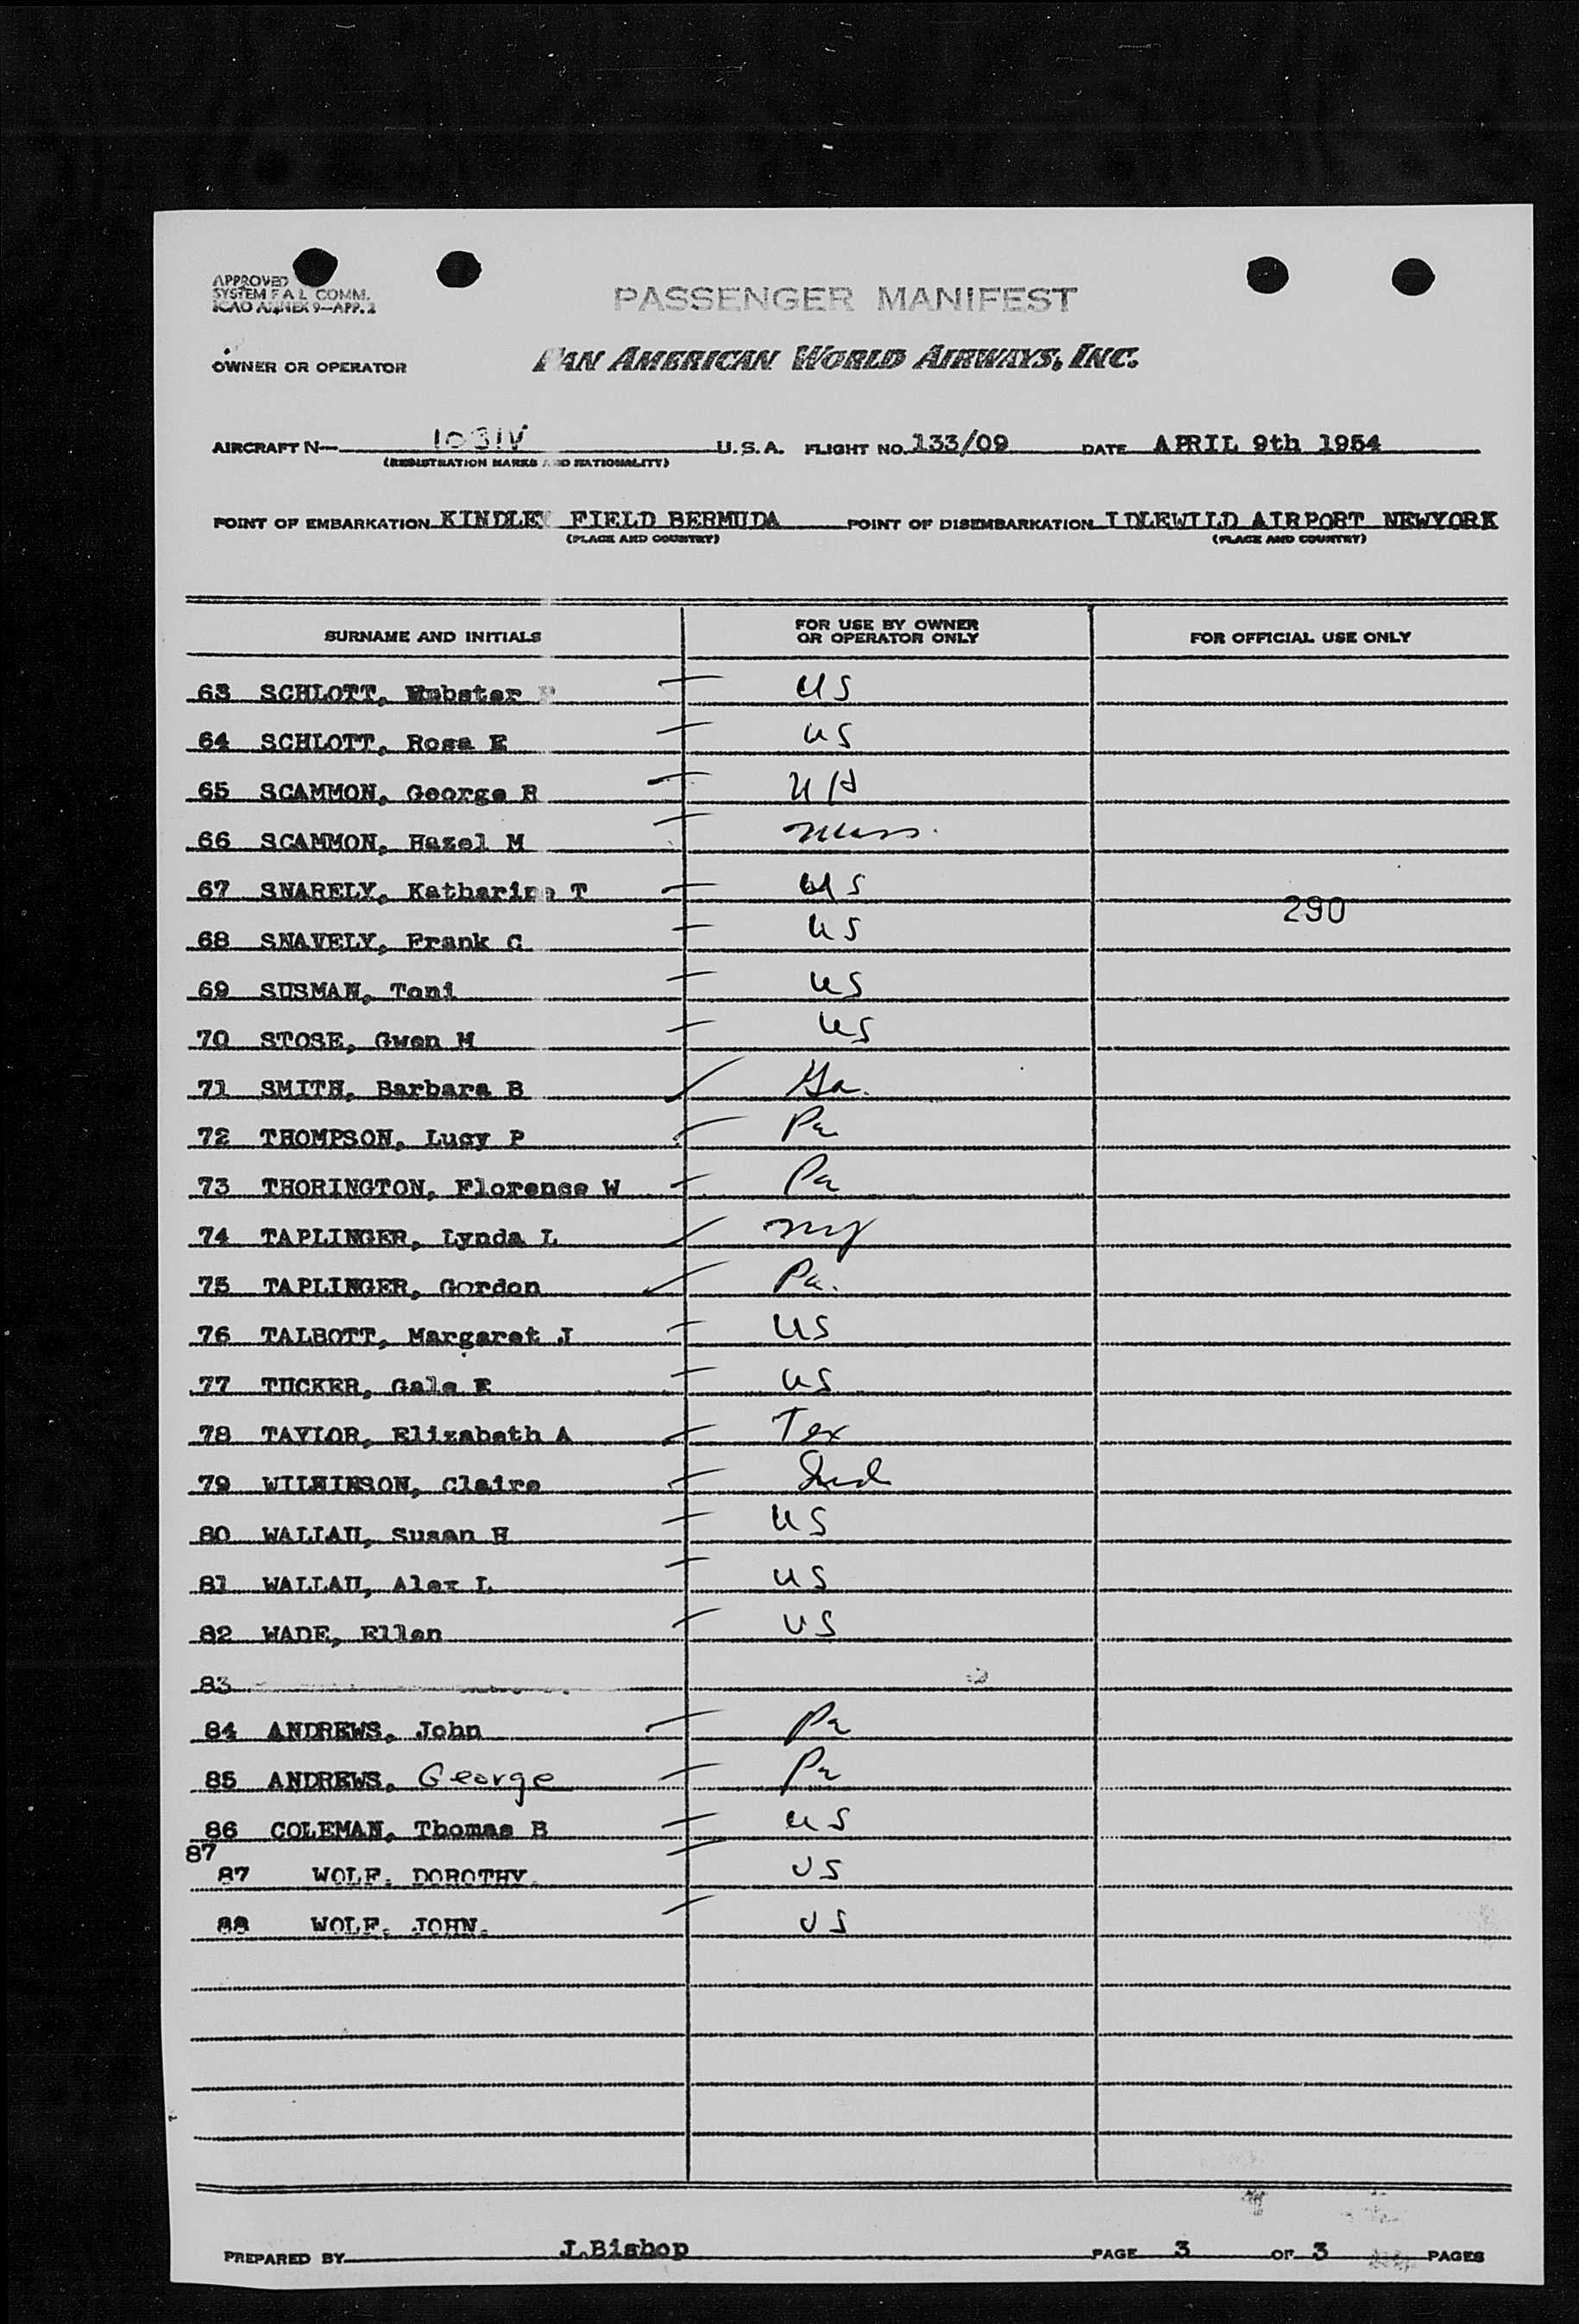 APPROVED
SYSTEM F A L COMM.
ICAO ANNEX 9—APP. 2
PASSENGER MANIFEST
OWNER OR OPERATOR PAN AMERICAN WORLD AIRWAYS, INC.
AIRCRAFT N— 1031V U.S.A. FLIGHT NO. 133/09 DATE APRIL 9th 1954
(REGISTRATION MARKS AND NATIONALITY)
POINT OF EMBARKATION KINDLEY FIELD BERMUDA POINT OF DISEMBARKATION IDLEWILD AIRPORT NEWYORK
(PLACE AND COUNTRY) (PLACE AND COUNTRY)
SURNAME AND INITIALS FOR USE BY OWNER OR OPERATOR ONLY FOR OFFICIAL USE ONLY
63 SCHLOTT, Webster F US
64 SCHLOTT, Rosa E US
65 SCAMMON, George R NH
66 SCAMMON, Hazel M Mass.
67 SNARELY, Katharine T US
290
68 SNAVELY, Frank C US
69 SUSMAN, Toni US
70 STOSE, Gwen M US
71 SMITH, Barbara B Ga.
72 THOMPSON, Lucy P Pa
73 THORINGTON, Florence W Pa
74 TAPLINGER, Lynda L NY
75 TAPLINGER, Gordon Pa.
76 TALBOTT, Margaret J US
77 TUCKER, Gale E US
78 TAYLOR, Elizabeth A Tex
79 WILKINSON, Claire Ind
80 WALLAU, Susan H US
81 WALLAU, Alex L US
82 WADE, Ellen US
83
84 ANDREWS, John Pa
85 ANDREWS, George Pa
86 COLEMAN, Thomas B US
87
87 WOLF. DOROTHY. US
88 WOLF. JOHN. US
PREPARED BY J.Bishop PAGE 3 OF 3 PAGES